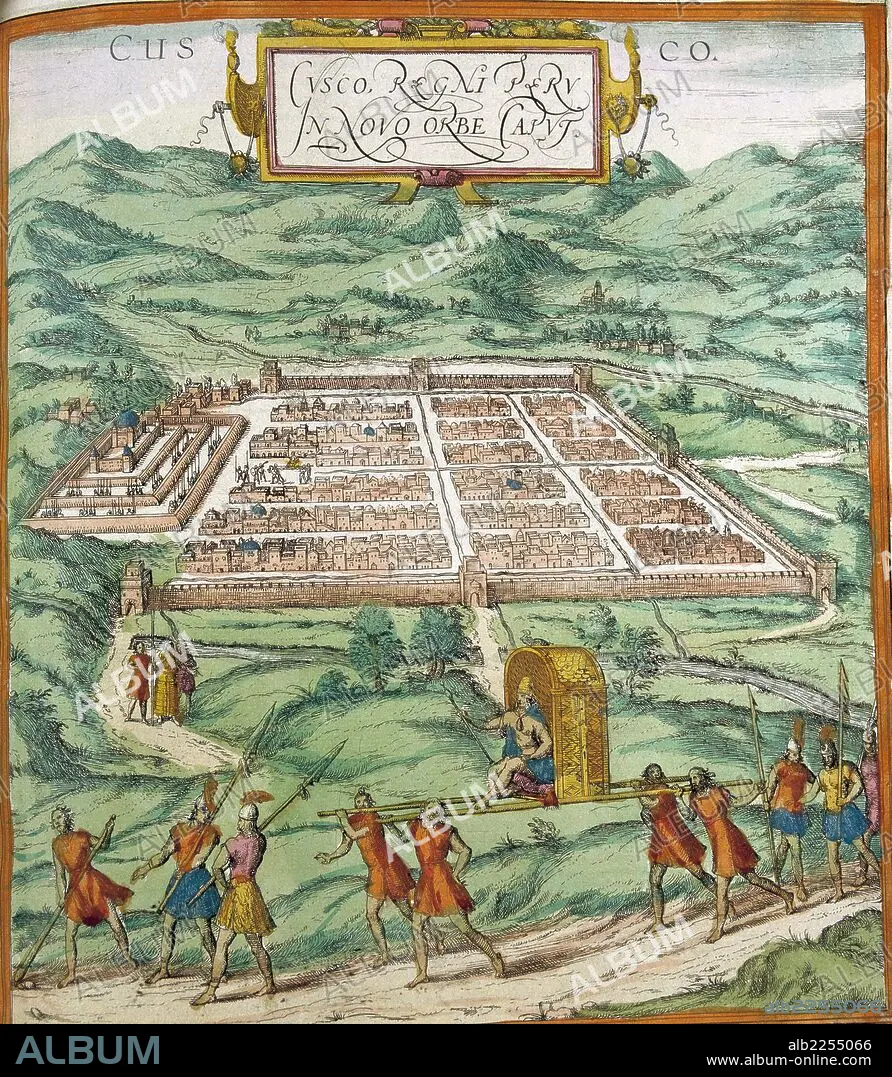 CUS CO.
CVSCO, REGNI PERV
IN NOVO ORBE CAPVT
ALBUM
alb2255066
www.album-online.com